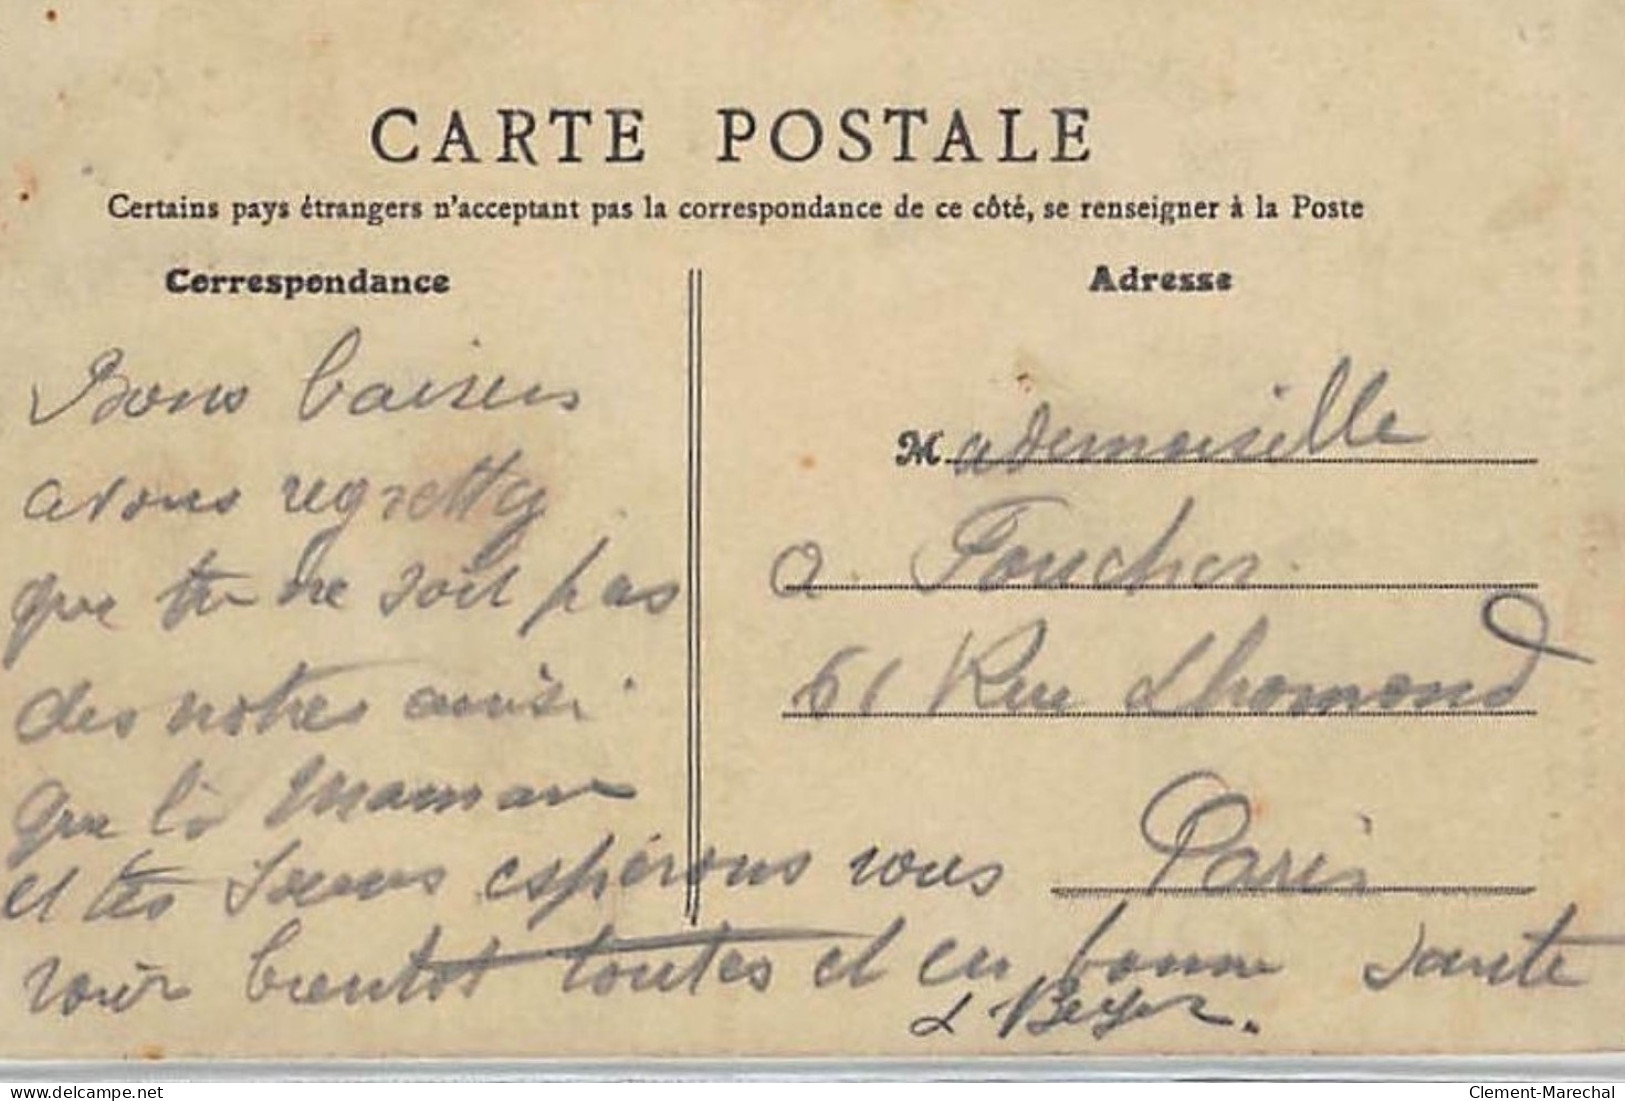 CARTE POSTALE
Certains pays étrangers n'acceptant pas la correspondance de ce côté, se renseigner à la Poste
Correspondance
Bons baisers
avons regretté
que tu ne soit pas
des notres ainsi
que la Maman
et tes Soeurs espérons vous
voir bientot toutes et en bonne santé
L Beyer.
Adresse
Mademoiselle
a. Foucher.
61 Rue Lhomond
Paris
delcampe.net
Clement-Marechal